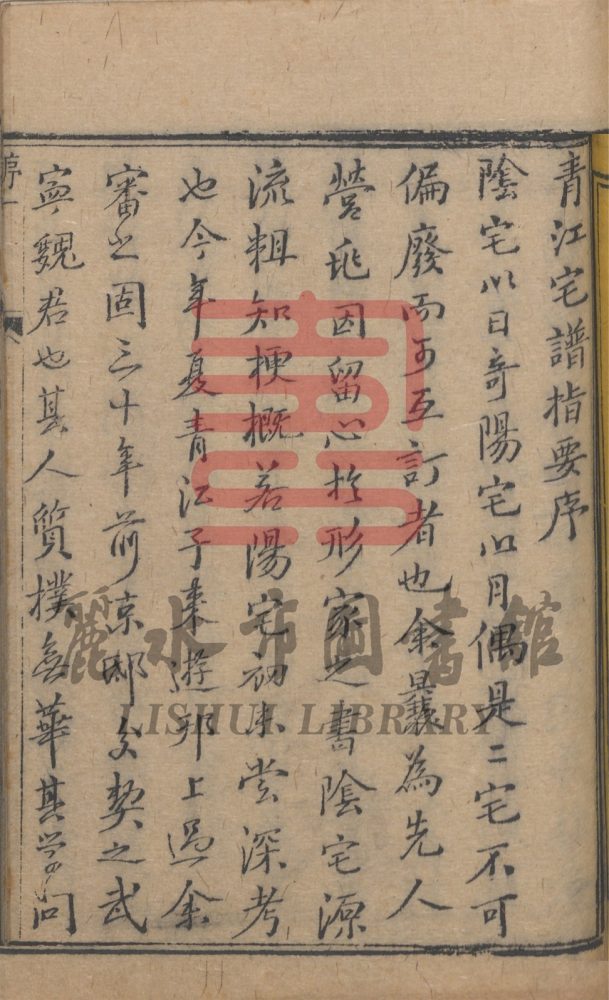 青江宅譜指要序
陰宅以日奇陽宅以月偶是二宅不可
偏廢而可互訂者也余曩為先人
營兆因留心於形家之書陰宅源
流粗知梗概若陽宅初未嘗深考
也今年夏青江子來遊邗上過余
審之固三十年前京邸父契之武
寧魏君也其人質樸無華其學問
序一
麗水市圖書館
LISHUI LIBRARY